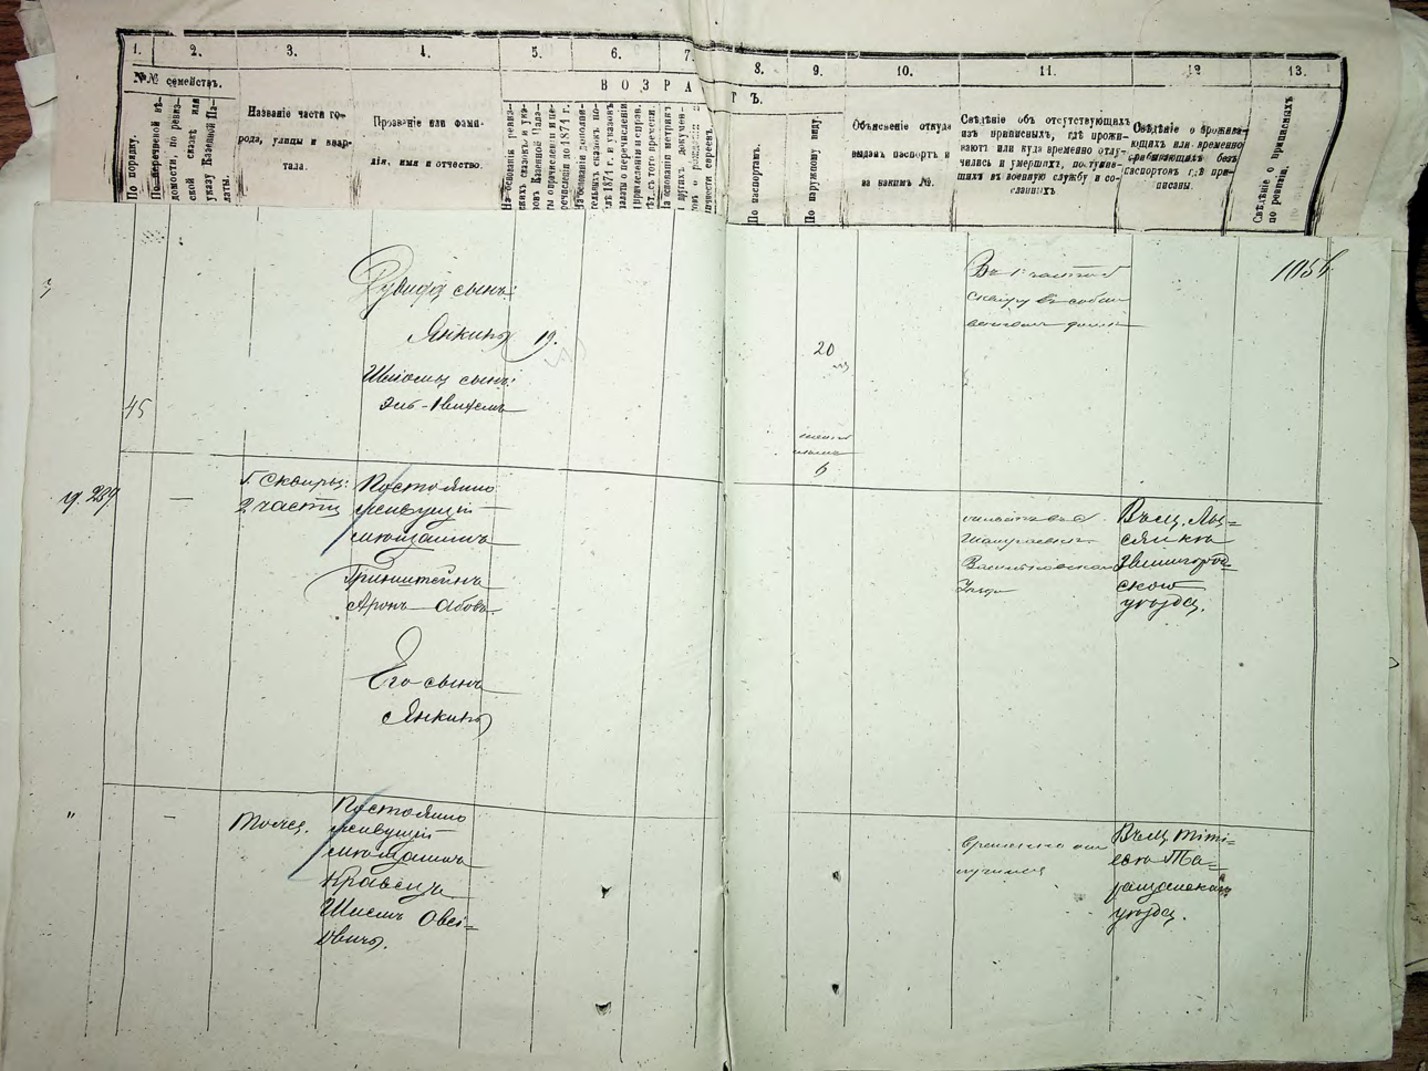 1.
2.
3.
4.
5.
6.
7.
8.
9.
10.
11.
12
13.
№№ семействъ.
По порядку.
По перечневой вѣ-
домости, по ревиз-
ской сказкѣ или
указу Казенной Па-
латы.
Названіе части го-
рода, улицы и квар-
тала.
Прозваніе или фами-
лія, имя и отчество.
ВОЗРА
ТЪ.
На основаніи ревиз-
скихъ сказокъ и ука-
зовъ Казенной Пала-
ты о причисленіи и пе-
речисленіи до 1874 г.
На основаніи дополни-
тельныхъ сказокъ по-
слѣ 1874 г. и указовъ
палаты о перечисленіи
и причисленіи и справ.
съ того времени.
На основаніи метрик.
и другихъ докумен-
товъ о рожденіи
личности евреевъ.
По паспортамъ.
По наружному виду.
Объясненіе откуда
выданъ паспортъ и
за какимъ №.
Свѣдѣніе объ отсутствующихъ
изъ приписныхъ, гдѣ прожи-
ваютъ или куда временно отлу-
чились и умершихъ, поступив-
шихъ въ военную службу и со-
сланныхъ
Свѣдѣніе о прожива-
ющихъ или временно
прибывающихъ безъ
паспортовъ гдѣ при-
писаны.
Свѣдѣніе о приписныхъ
по ревизіи.
Дувида сынъ:
Янкиль 19.
20
Шлiомы сынъ:
45
6
Въ 1 части
Сквиру въ собст
венномъ домѣ
105
239
—
Г. Сквиры:
2 части
Постоянно
живущій
мѣщанинъ
Гринштейнъ
Аронъ Абовъ
Его сынъ
Янкиль
Васильковскаго
Въ м. Лы=
сянкѣ
Звенигород=
скаго
уѣзда.
"
—
Тоже.
Постоянно
живущій
мѣщанинъ
Кравецъ
Шмель Овсі=
овичъ.
временно от
лучился
Въ м. Титі=
евѣ Та=
ращанскаго
уѣзда.